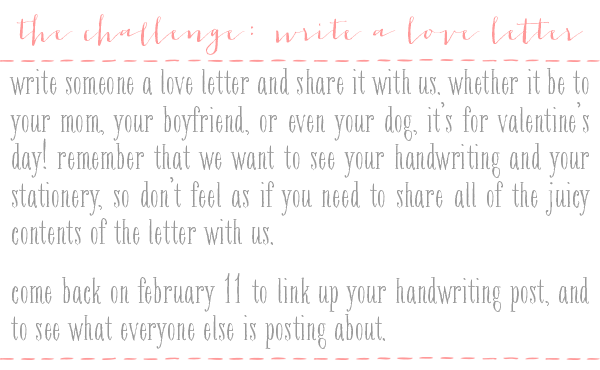 the challenge: write a love letter
write someone a love letter and share it with us. whether it be to
your mom, your boyfriend, or even your dog, it's for valentine's
day! remember that we want to see your handwriting and your
stationery, so don't feel as if you need to share all of the juicy
contents of the letter with us.
come back on february 11 to link up your handwriting post, and
to see what everyone else is posting about.